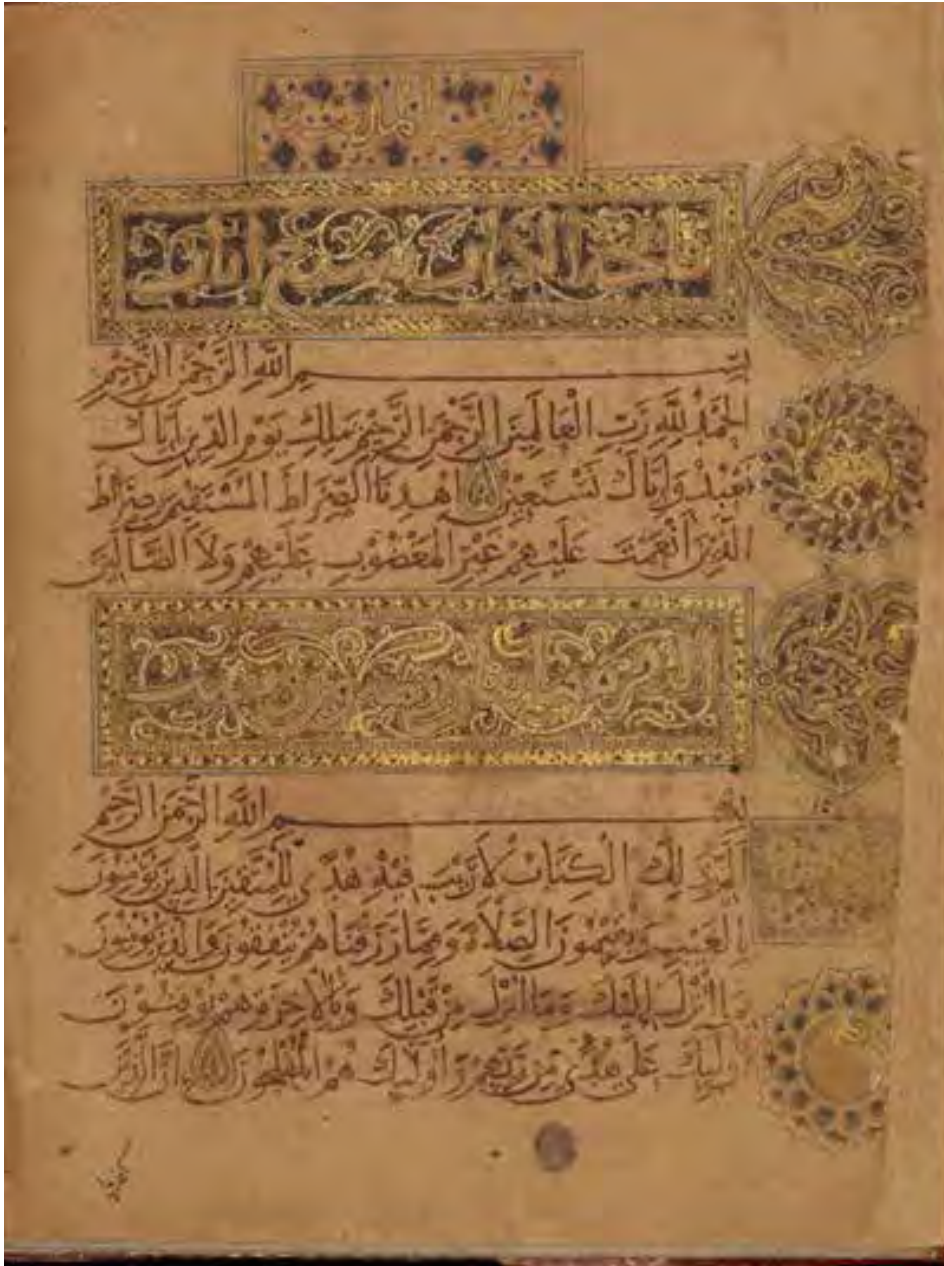 فاتحة الكتاب سبع آيات
بِسْمِ اللَّهِ الرَّحْمَنِ الرَّحِيمِ
الْحَمْدُ لِلَّهِ رَبِّ الْعَالَمِينَ الرَّحْمَنِ الرَّحِيمِ مَلِكِ يَوْمِ الدِّينِ إِيَّاكَ
نَعْبُدُ وَإِيَّاكَ نَسْتَعِينُ اهْدِنَا الصِّرَاطَ الْمُسْتَقِيمَ صِرَاطَ
الَّذِينَ أَنْعَمْتَ عَلَيْهِمْ غَيْرِ الْمَغْضُوبِ عَلَيْهِمْ وَلَا الضَّالِّينَ
بِسْمِ اللَّهِ الرَّحْمَنِ الرَّحِيمِ
الم ذَلِكَ الْكِتَابُ لَا رَيْبَ فِيهِ هُدًى لِلْمُتَّقِينَ الَّذِينَ يُؤْمِنُونَ
الْغَيْبِ وَيُقِيمُونَ الصَّلَاةَ وَمِمَّا رَزَقْنَاهُمْ يُنْفِقُونَ وَالَّذِينَ يُؤْمِنُونَ
أُنْزِلَ إِلَيْكَ وَمَا أُنْزِلَ مِنْ قَبْلِكَ وَبِالْآخِرَةِ هُمْ يُوقِنُونَ
أُولَئِكَ عَلَى هُدًى مِنْ رَبِّهِمْ وَأُولَئِكَ هُمُ الْمُفْلِحُونَ إِنَّ الَّذِينَ